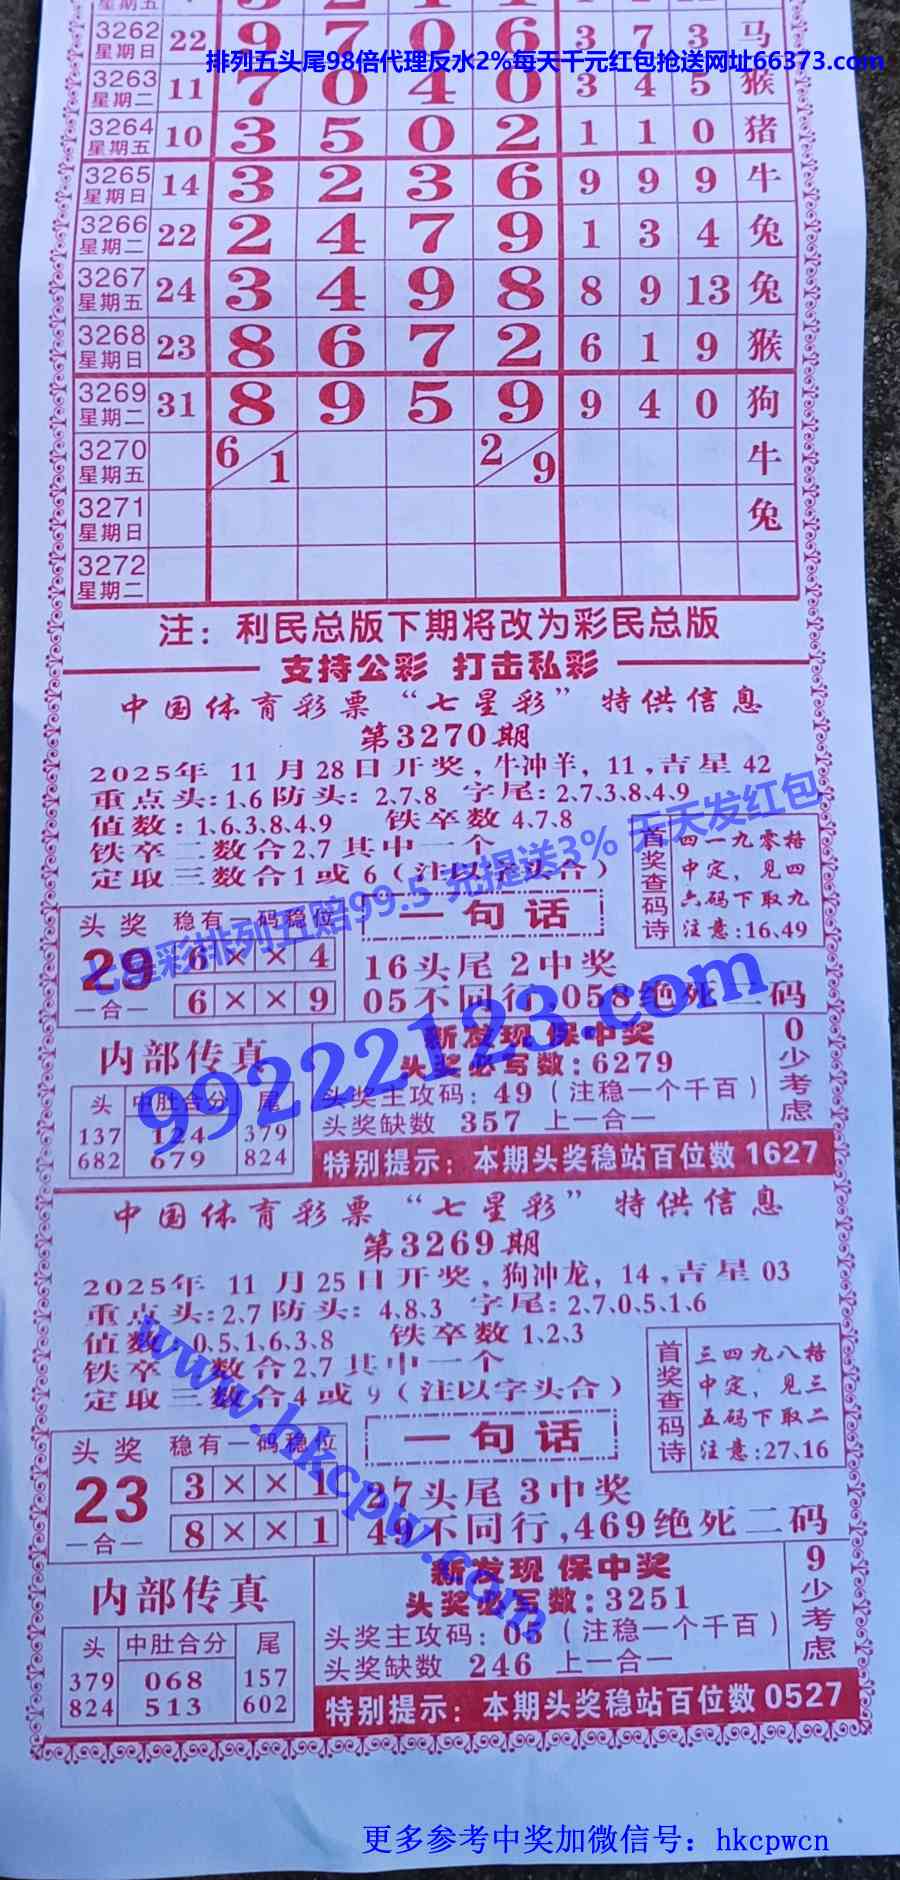 排列五头尾98倍代理反水2%每天千元红包抢送网址66373.com
3262 星期日 22 9 7 0 6 3 7 3 马
3263 星期二 11 7 0 4 0 3 4 5 猴
3264 星期五 10 3 5 0 2 1 1 0 猪
3265 星期日 14 3 2 3 6 9 9 9 牛
3266 星期二 22 2 4 7 9 1 3 4 兔
3267 星期五 24 3 4 9 8 8 9 13 兔
3268 星期日 23 8 6 7 2 6 1 9 猴
3269 星期二 31 8 9 5 9 9 4 0 狗
3270 星期五 6/1 2/9 牛
3271 星期日 兔
3272 星期二
注：利民总版下期将改为彩民总版
支持公彩 打击私彩
中国体育彩票“七星彩”特供信息
第3270期
2025年 11月28日开奖，牛冲羊，11，吉星 42
重点头：1、6 防头：2、7、8 字尾：2、7、3、8、4、9
值数：1、6、3、8、4、9 铁卒数 4、7、8
铁卒二数合2、7其中一个
定取三数合1或6（注以字头合）
首奖查码诗
四一九零格
中定，见四
六码下取九
注意：16、49
七星彩排列五赔99.5 充提送3% 天天发红包
头奖 稳有一码稳位
29 6××4
一合一 6××9
一句话
16头尾2中奖
05不同行，058绝死二码
99222123.com
内部传真
头 中肚合分 尾
137 124 379
682 679 824
新发现 保中奖
头奖必写数：6279
头奖主攻码：49（注稳一个千百）
头奖缺数 357 上一合一
0少考虑
特别提示：本期头奖稳站百位数1627
中国体育彩票“七星彩”特供信息
第3269期
2025年 11月25日开奖，狗冲龙，14，吉星 03
重点头：2、7 防头：4、8、3 字尾：2、7、0、5、1、6
值数：0、5、1、6、3、8 铁卒数 1、2、3
铁卒二数合2、7其中一个
定取三数合4或9（注以字头合）
首奖查码诗
三四九八格
中定，见三
五码下取二
注意：27、16
www.hkcpw.com
头奖 稳有一码稳位
23 3××1
一合一 8××1
一句话
27头尾3中奖
49不同行，469绝死二码
内部传真
头 中肚合分 尾
379 068 157
824 513 602
新发现 保中奖
头奖必写数：3251
头奖主攻码：06（注稳一个千百）
头奖缺数 246 上一合一
9少考虑
特别提示：本期头奖稳站百位数0527
更多参考中奖加微信号：hkcpwcn